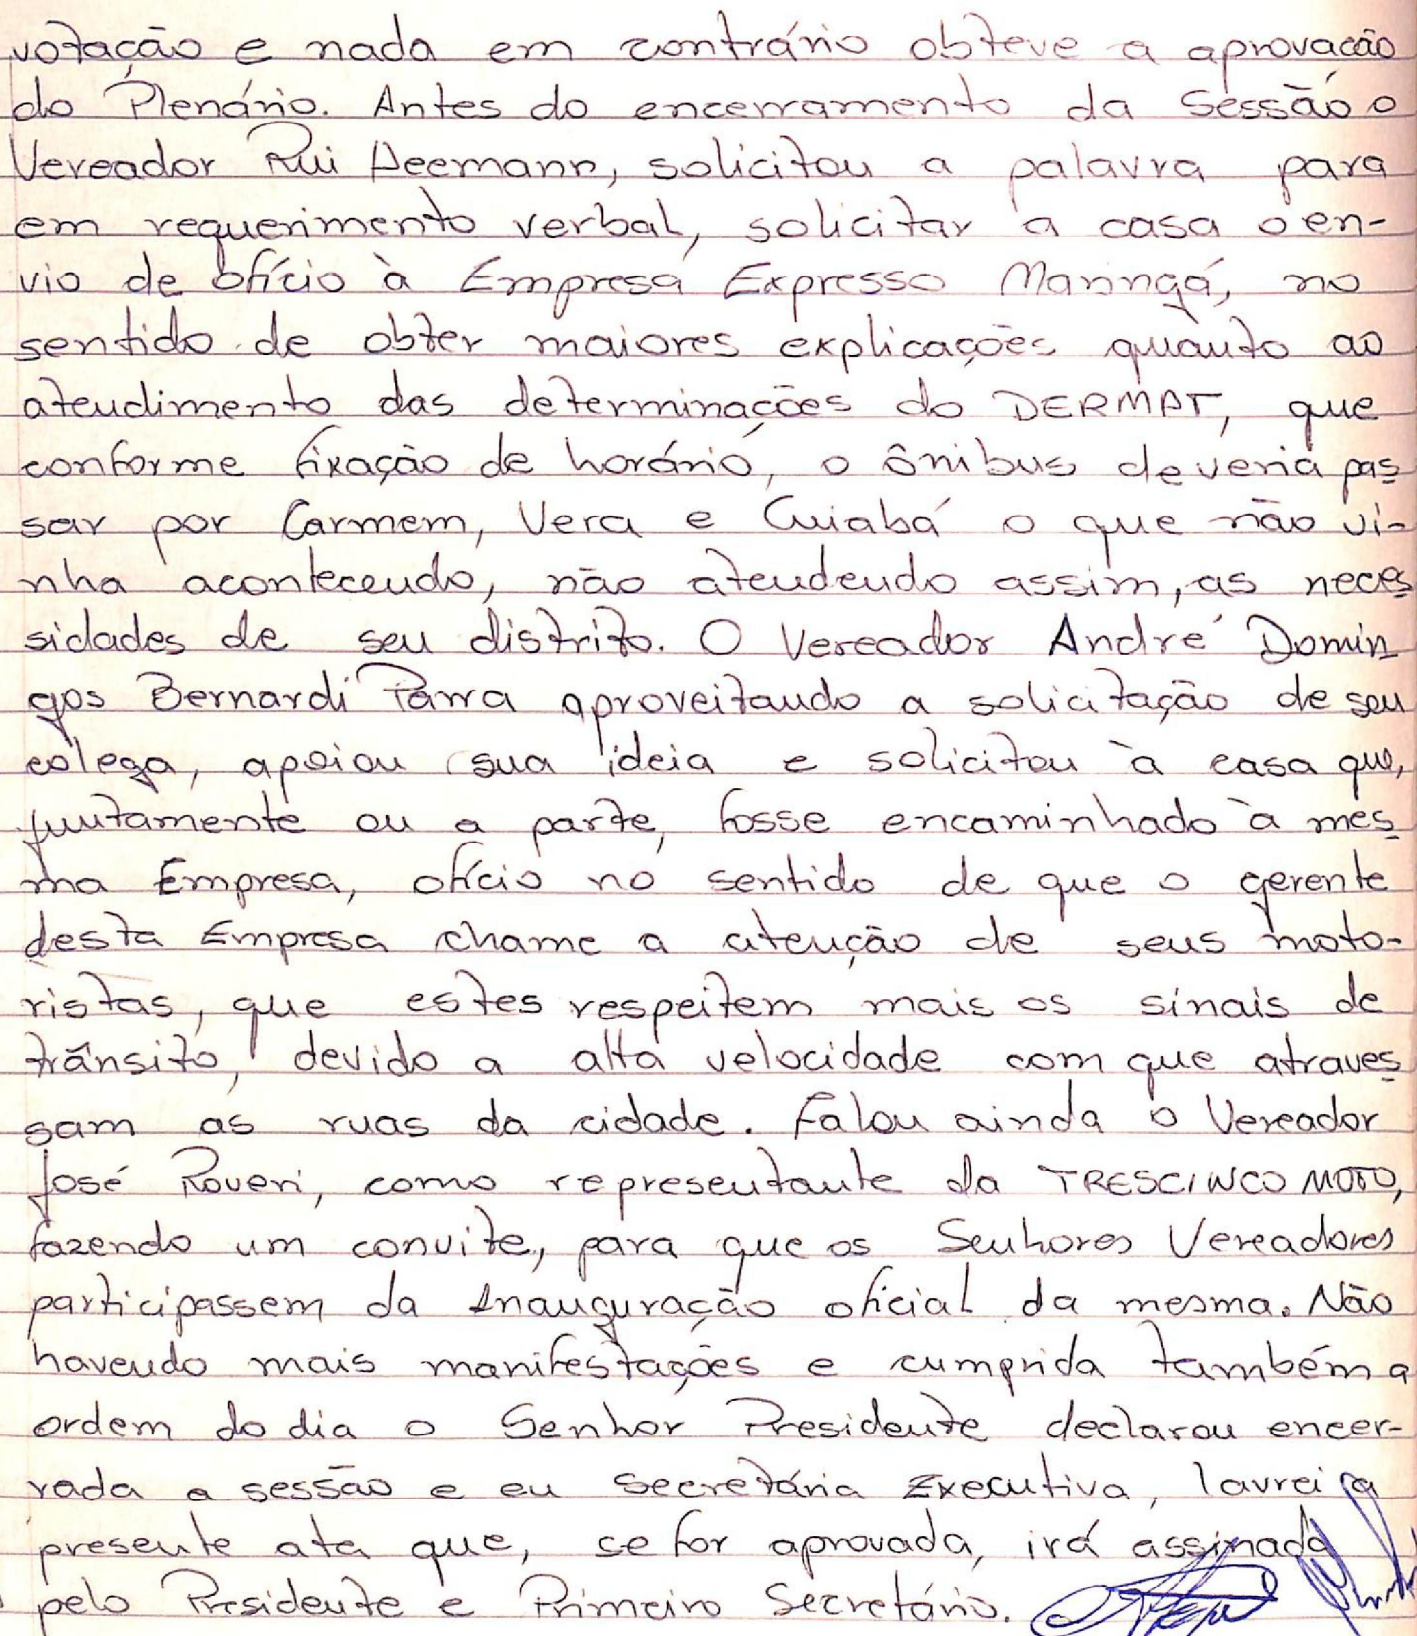 votação e nada em contrário obteve a aprovação
do Plenário. Antes do encerramento da Sessão o
Vereador Rui Heemann, solicitou a palavra para
em requerimento verbal, solicitar a casa o en-
vio de ofício à Empresa Expresso Maringá, no
sentido de obter maiores explicações quanto ao
atendimento das determinações do DERMAT, que
conforme fixação de horário, o ônibus deveria pas
sar por Carmem, Vera e Cuiabá o que não vi-
nha acontecendo, não atendendo assim, as neces
sidades de seu distrito. O Vereador André Domin
gos Bernardi Parra aproveitando a solicitação de seu
colega, apoiou sua ideia e solicitou à casa que,
juntamente ou a parte, fosse encaminhado à mes
ma Empresa, ofício no sentido de que o gerente
desta Empresa chame a atenção de seus moto-
ristas, que estes respeitem mais os sinais de
trânsito, devido a alta velocidade com que atraves
sam as ruas da cidade. Falou ainda o Vereador
José Roveri, como representante da TRESCINCO MOTO,
fazendo um convite, para que os Senhores Vereadores
participassem da Inauguração oficial da mesma. Não
havendo mais manifestações e cumprida também a
ordem do dia o Senhor Presidente declarou encer-
rada a sessão e eu Secretária Executiva, lavrei a
presente ata que, se for aprovada, irá assinada
pelo Presidente e Primeiro Secretário.